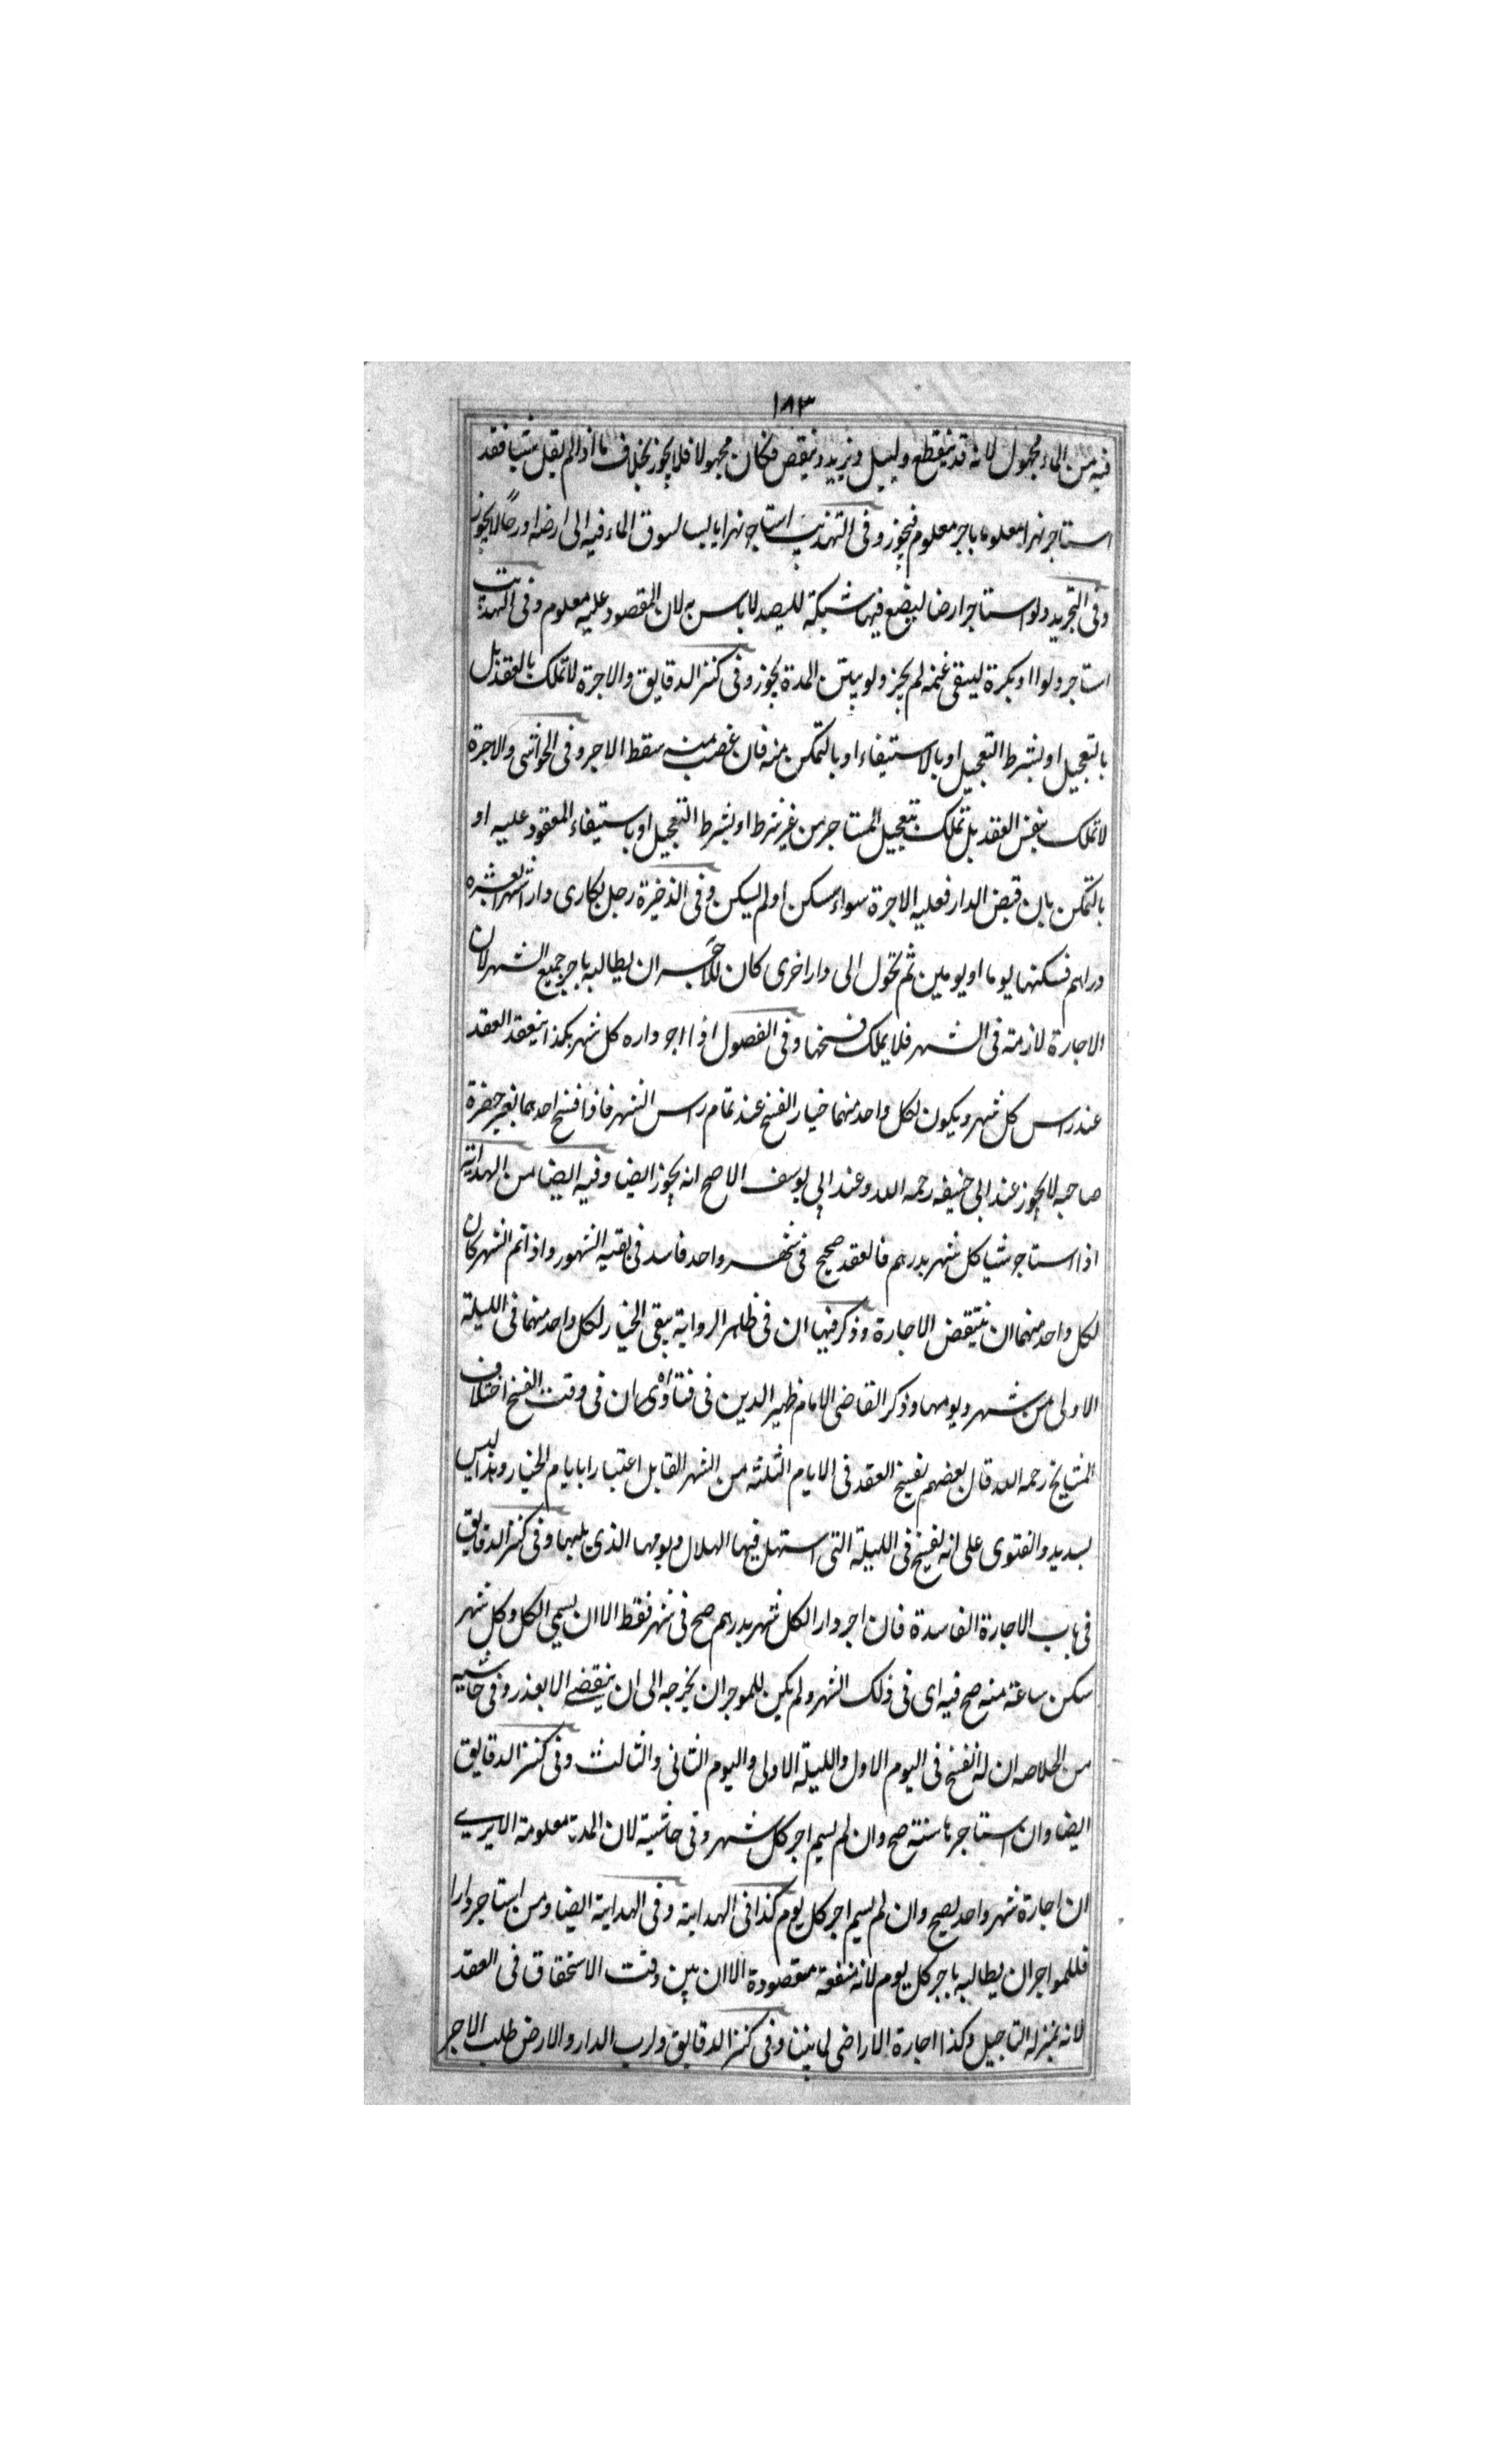 ١٨٣
فيه من الماء مجهول لانه قد ينقطع ويسيل ويزيد وينقص فكان مجهولا فلا يجوز بخلاف ما اذا لم يقل شيا فقد
استاجر نهرا معلوما باجر معلوم فيجوز وفى التهذيب استاجر نهرا يابسا لسوق الماء فيه الى ارضه او رحا لا يجوز
وفى التجريد ولو استاجر ارضا ليضع فيها شبكة للصيد لا باس به لان المقصود عليه معلوم وفى التهذيب
استاجر دلوا او بكرة ليسقى غنمه لم يجز ولو بين المدة يجوز وفى كنز الدقايق والاجرة لا تملك بالعقد بل
بالتعجيل او بشرط التعجيل او بالاستيفاء او بالتمكن منه فان غصب منه سقط الاجر وفى الحواشى والاجرة
لا تملك بنفس العقد بل تملك بتعجيل المستاجر من غير شرط او بشرط التعجيل او باستيفاء المعقود عليه او
بالتمكن بان قبض الدار فعليه الاجرة سواء سكن او لم يسكن وفى الذخيرة رجل تكارى دارا شهرا بعشره
دراهم فسكنها يوما او يومين ثم تحول الى دار اخرى كان للآجر ان يطالبه باجر جميع الشهر لان
الاجارة لازمة فى الشهر فلا يملك فسخها وفى الفصول اذا اجر داره كل شهر بكذا ينعقد العقد
عند راس كل شهر ويكون لكل واحد منهما خيار الفسخ عند تمام راس الشهر فاذا فسخ احدهما بغير حضرة
صاحبه لا يجوز عند ابى حنيفه رحمه الله وعند ابى يوسف الاصح انه يجوز ايضا وفيه ايضا من الهداية
اذا استاجر شيا كل شهر بدرهم فالعقد صحيح فى شهر واحد فاسد فى بقيه الشهور واذا تم الشهر كان
لكل واحد منهما ان ينتقض الاجارة وذكر فيها ان فى ظاهر الرواية يبقى الخيار لكل واحد منهما فى الليلة
الاولى من شهر ويومها وذكر القاضى الامام ظهير الدين فى فتاواه ان فى وقت الفسخ اختلاف
المشايخ رحمه الله قال بعضهم يفسخ العقد فى الايام الثلثة من الشهر القابل اعتبارا بايام الخيار وهذا ليس
بسديد والفتوى على انه يفسخ فى الليلة التى استهل فيها الهلال ويومها الذى يليها وفى كنز الدقايق
فى باب الاجارة الفاسدة فان اجر دارا لكل شهر بدرهم صح فى شهر فقط الا ان يسمى الكل وكل شهر
سكن ساعة منه صح فيه اى فى ذلك الشهر ولم يكن للموجر ان يخرجه الى ان ينقضى الا بعذر وفى حاشيه
من الخلاصه ان له الفسخ فى اليوم الاول والليلة الاولى واليوم الثانى والثالث وفى كنز الدقايق
ايضا وان استاجرها سنة صح وان لم يسم اجر كل شهر وفى حاشية لان المدة معلومة الا يرى
ان اجارة شهر واحد يصح وان لم يسم اجر كل يوم كذا فى الهداية وفى الهداية ايضا ومن استاجر دارا
فللمواجر ان يطالبه باجر كل يوم لانه منفعة مقصودة الا ان يبين وقت الاستحقاق فى العقد
لانه بمنزله التاجيل وكذا اجارة الاراضى لما بينا وفى كنز الدقايق ولرب الدار والارض طلب الاجر